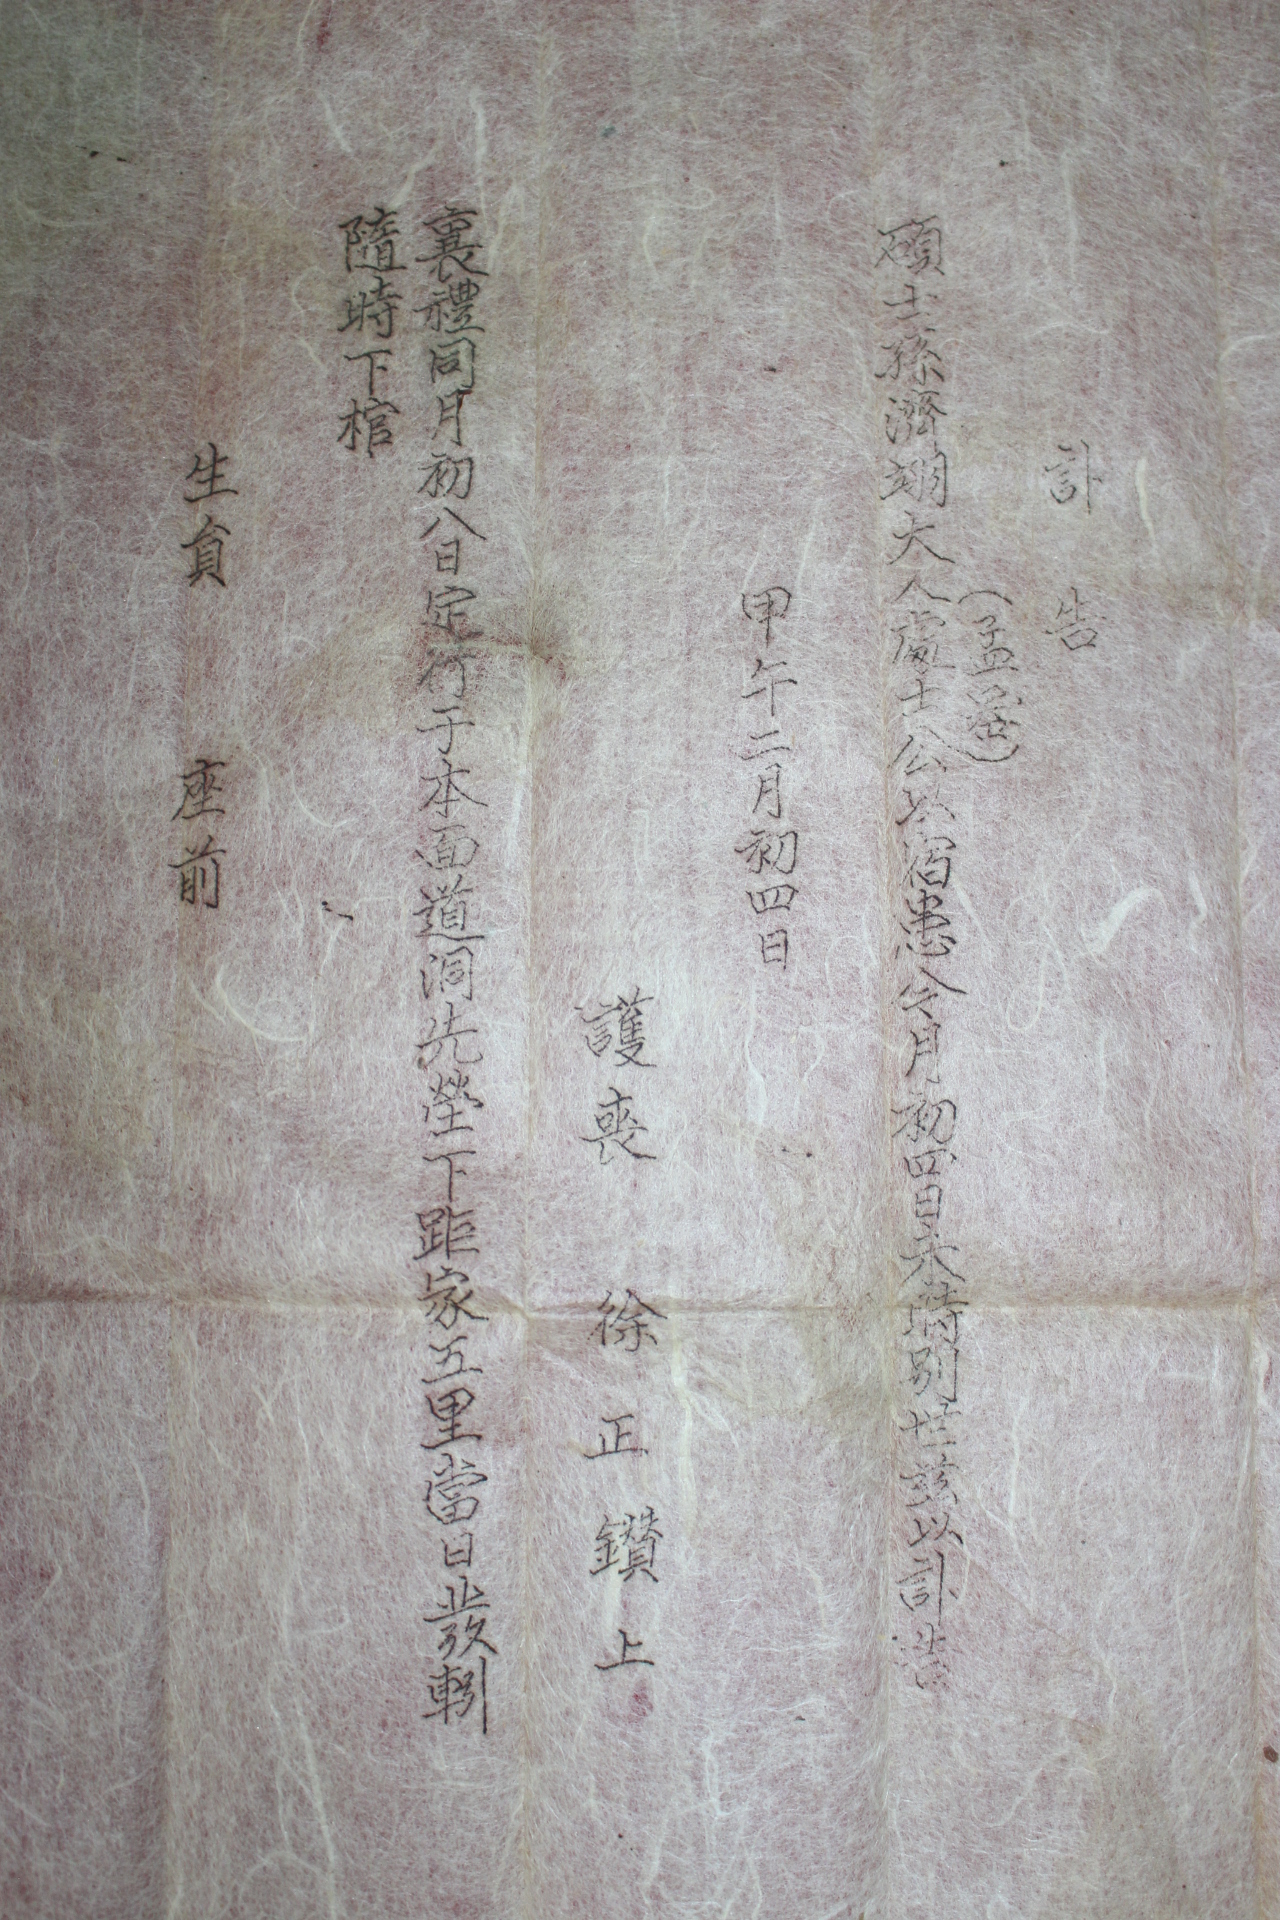 訃告
(孟
碩士孫濟翊大人處士公以宿患今月初四日未時別世玆以訃告
甲午二月初四日
護喪 徐正鑽上
襄禮同月初八日定行于本面道洞先塋下距家五里當日發靷
隨時下棺
生員 座前